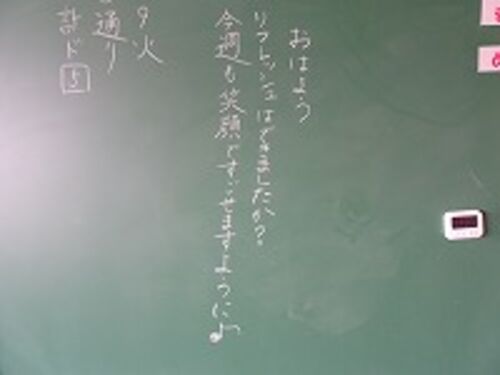 おはよう
リフレッシュはできましたか?
今週も笑顔ですごせますように♪
9 火
通り
計ド 5